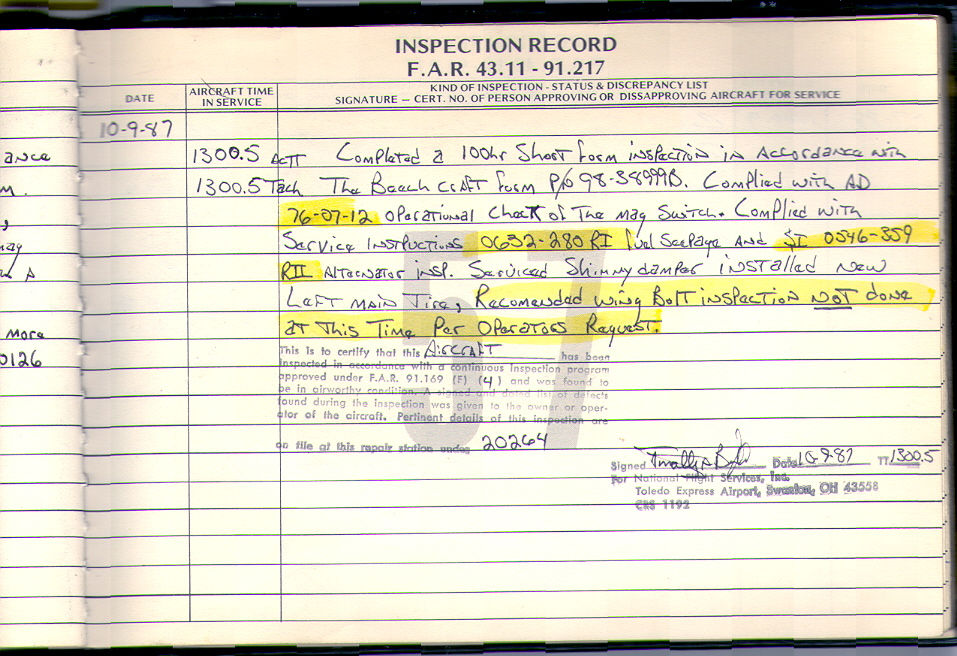 INSPECTION RECORD
F.A.R. 43.11 - 91.217
DATE
AIRCRAFT TIME
IN SERVICE
KIND OF INSPECTION - STATUS & DISCREPANCY LIST
SIGNATURE — CERT. NO. OF PERSON APPROVING OR DISSAPPROVING AIRCRAFT FOR SERVICE
10-9-87
ance
1300.5 ACTT Completed a 100hr Short form inspection in Accordance with
m.
1300.5 Tach The Beech craft form P/O 98-38999B. Complied with AD
76-07-12 Operational Check of The Mag Switch. Complied with
Service Instructions 0632-280 RI fuel Seepage And SI 0546-359
RII Alternator insp. Serviced Shimmy damper installed New
Left main Tire, Recomended wing Bolt inspection NOT done
more
at This Time Per Operators Request.
0126
57
This is to certify that this AIRCRAFT has been
inspected in accordance with a continuous inspection program
approved under F.A.R. 91.169 (F) (4) and was found to
be in airworthy condition. A signed and dated list of defects
found during the inspection was given to the owner or oper-
ator of the aircraft. Pertinent details of this inspection are
on file at this repair station under 20264
Signed Date 10-9-87 TT 1300.5
For National Flight Services, Inc.
Toledo Express Airport, Swanton, OH 43558
CRS 1192